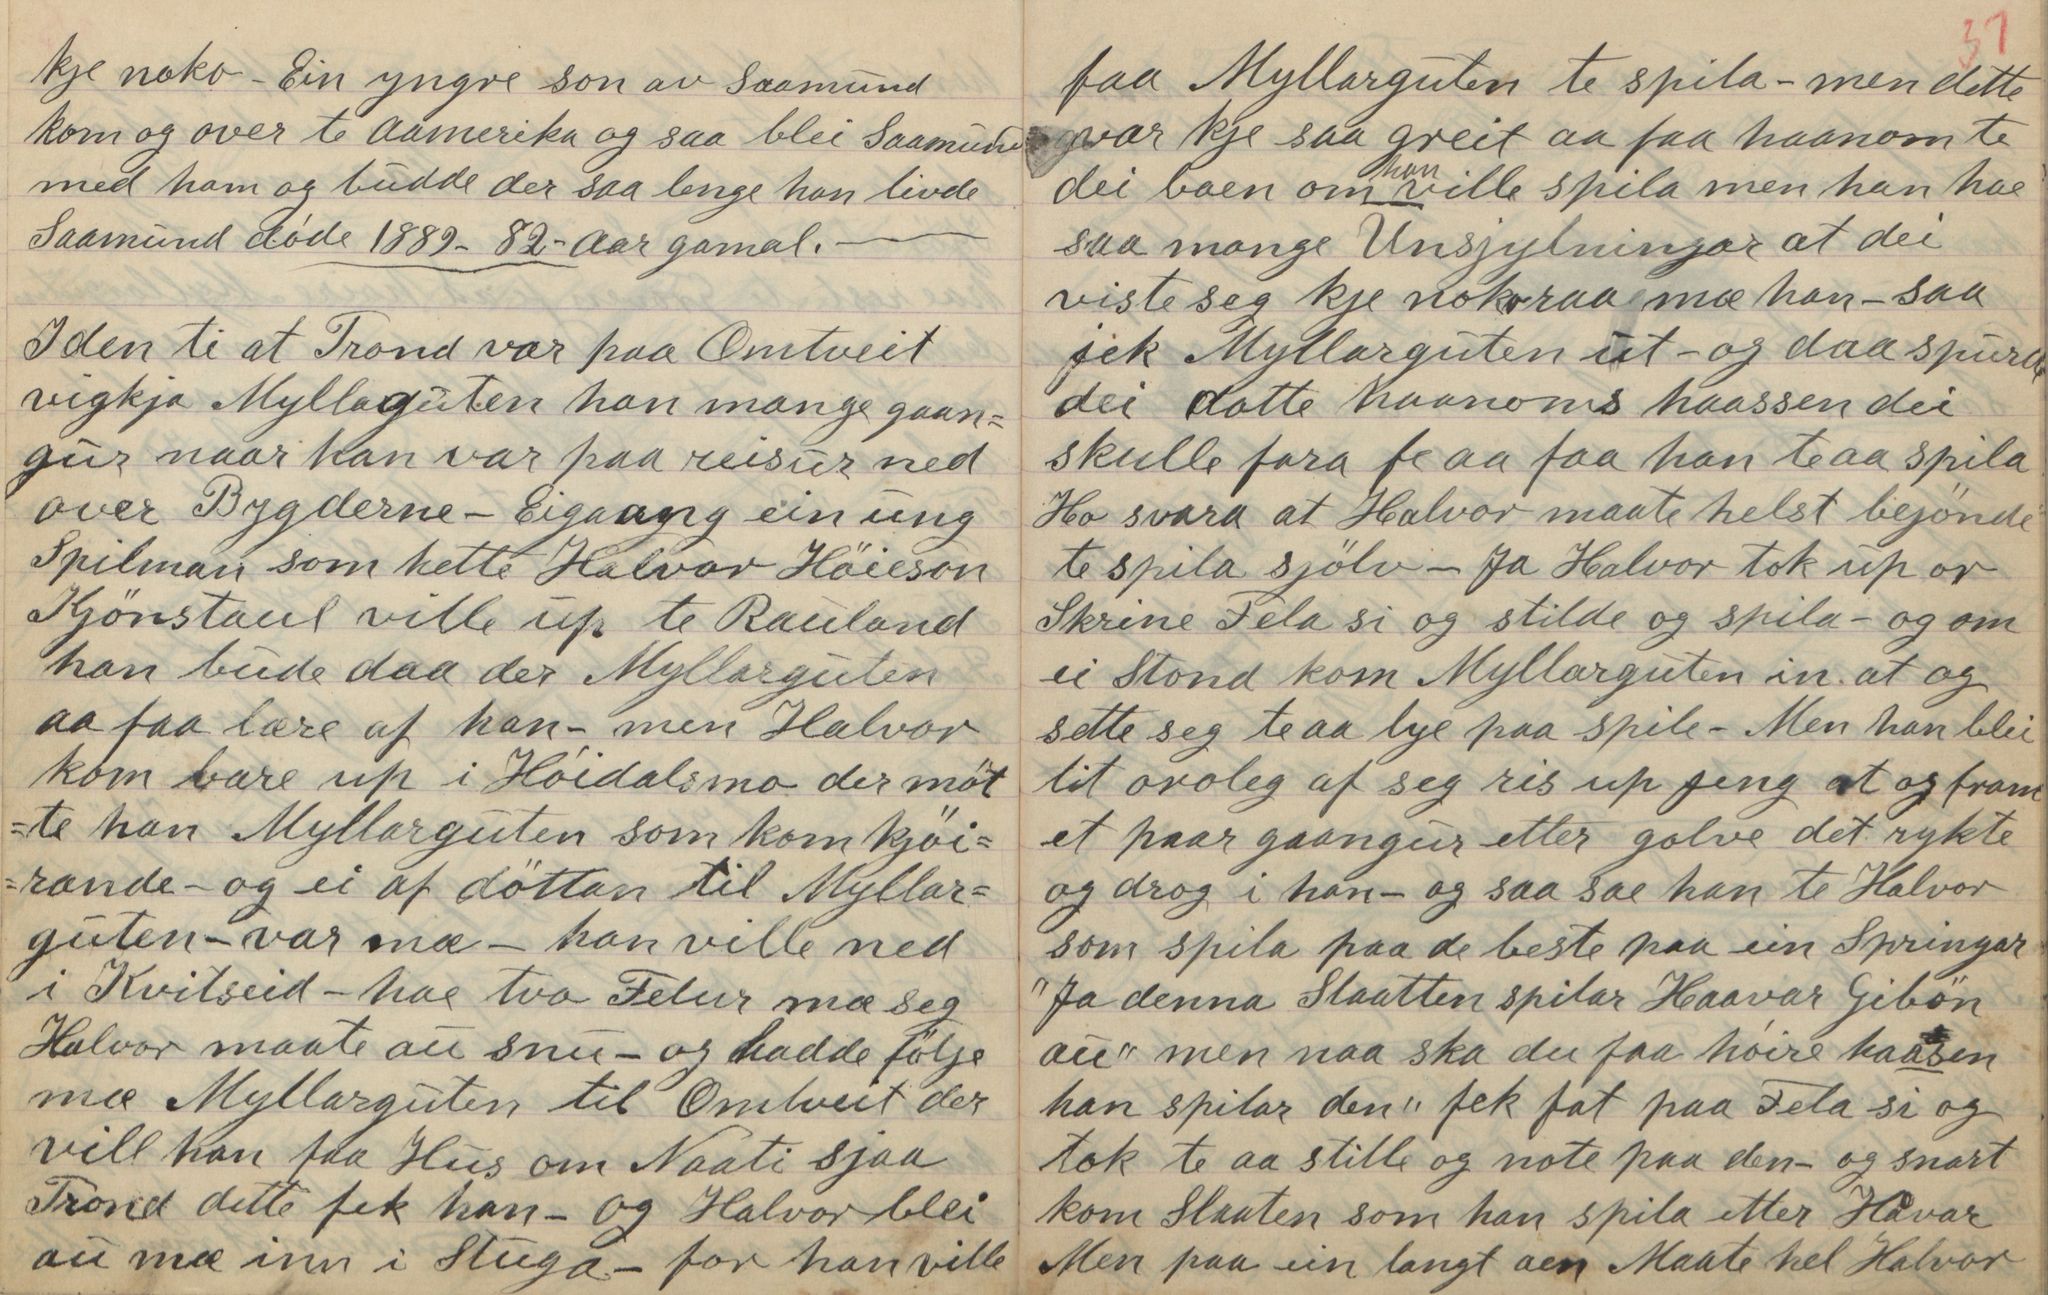 kje noko - Ein yngre son av Saamund
kom og over te Aamerika og saa blei Saamund
med ham og budde der saa lenge han livde
Saamund döde 1889 - 82 - Aar gamal. —
I den ti at Trond var paa Omtveit
vigkja Myllaguten han mange gaan=
gur naar han var paa reisur ned
over Bygderne - Eigaang ein ung
Spilman som hette Halvor Höieson
Kjönstaul ville up te Rauland
han bude daa der Myllarguten
aa faa lære af han - men Halvor
kom bare up i Höidalsmo der möt
=te han Myllarguten som kom kjöi=
=rande - og ei af döttan til Myllar=
guten - var mæ - han ville ned
i Kvitseid - hae tvo Felur mæ seg
Halvor maate au snu - og hadde följe
mæ Myllarguten til Omtveit der
vill han faa Hus om Naati sjaa
Trond dette fek han - og Halvor blei
au mæ inn i Stuga - for han ville
37
faa Myllarguten te spila - men dette
var kje saa greit aa faa haanom te
dei baen om han ville spila men han hae
saa mange Unsjylningar at dei
viste seg kje nokor raa mæ han - saa
jek Myllarguten ut - og daa spurde
dei dotte haanoms haassen dei
skulle fara fe aa faa han te aa spila
Ho svara at Halvor maate helst bejönde
te spila sjölv - Ja Halvor tok up or
Skrine Fela si og stilde og spila - og om
ei Stond kom Myllarguten in at og
sette seg te aa lye paa spile - Men han blei
lit oroleg af seg ris up jeng at og fram
et paar gaangur etter golve det rykte
og drog i han - og saa sae han te Halvor
som spila paa de beste paa ein Springar
"Ja denna Slaatten spilar Haavar Gibön
au" men naa ska du faa höire haassen
han spilar den" fek fat paa Fela si og
tok te aa stille og note paa den - og snart
kom Slaaten som han spila etter Havar
Men paa ein langt aen Maate hel Halvor